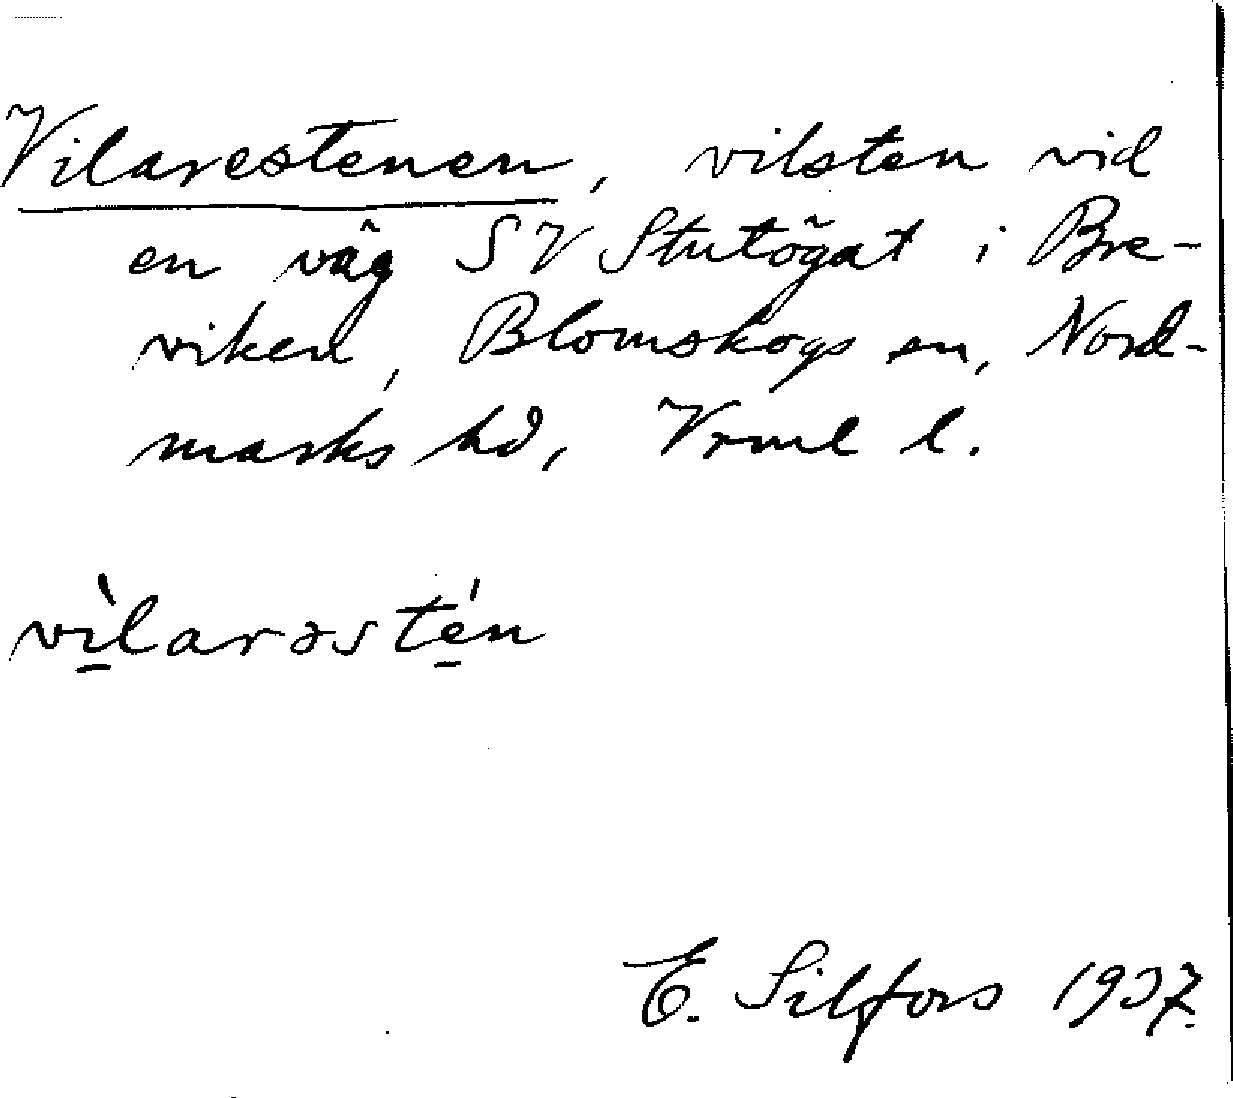 Vilarestenen, vilsten vid
en väg SV Stutögat i Bre-
viken, Blomskogs sn, Nord-
marks hd, Vrml l.
vı̀larəstén
E. Silfors 1937.